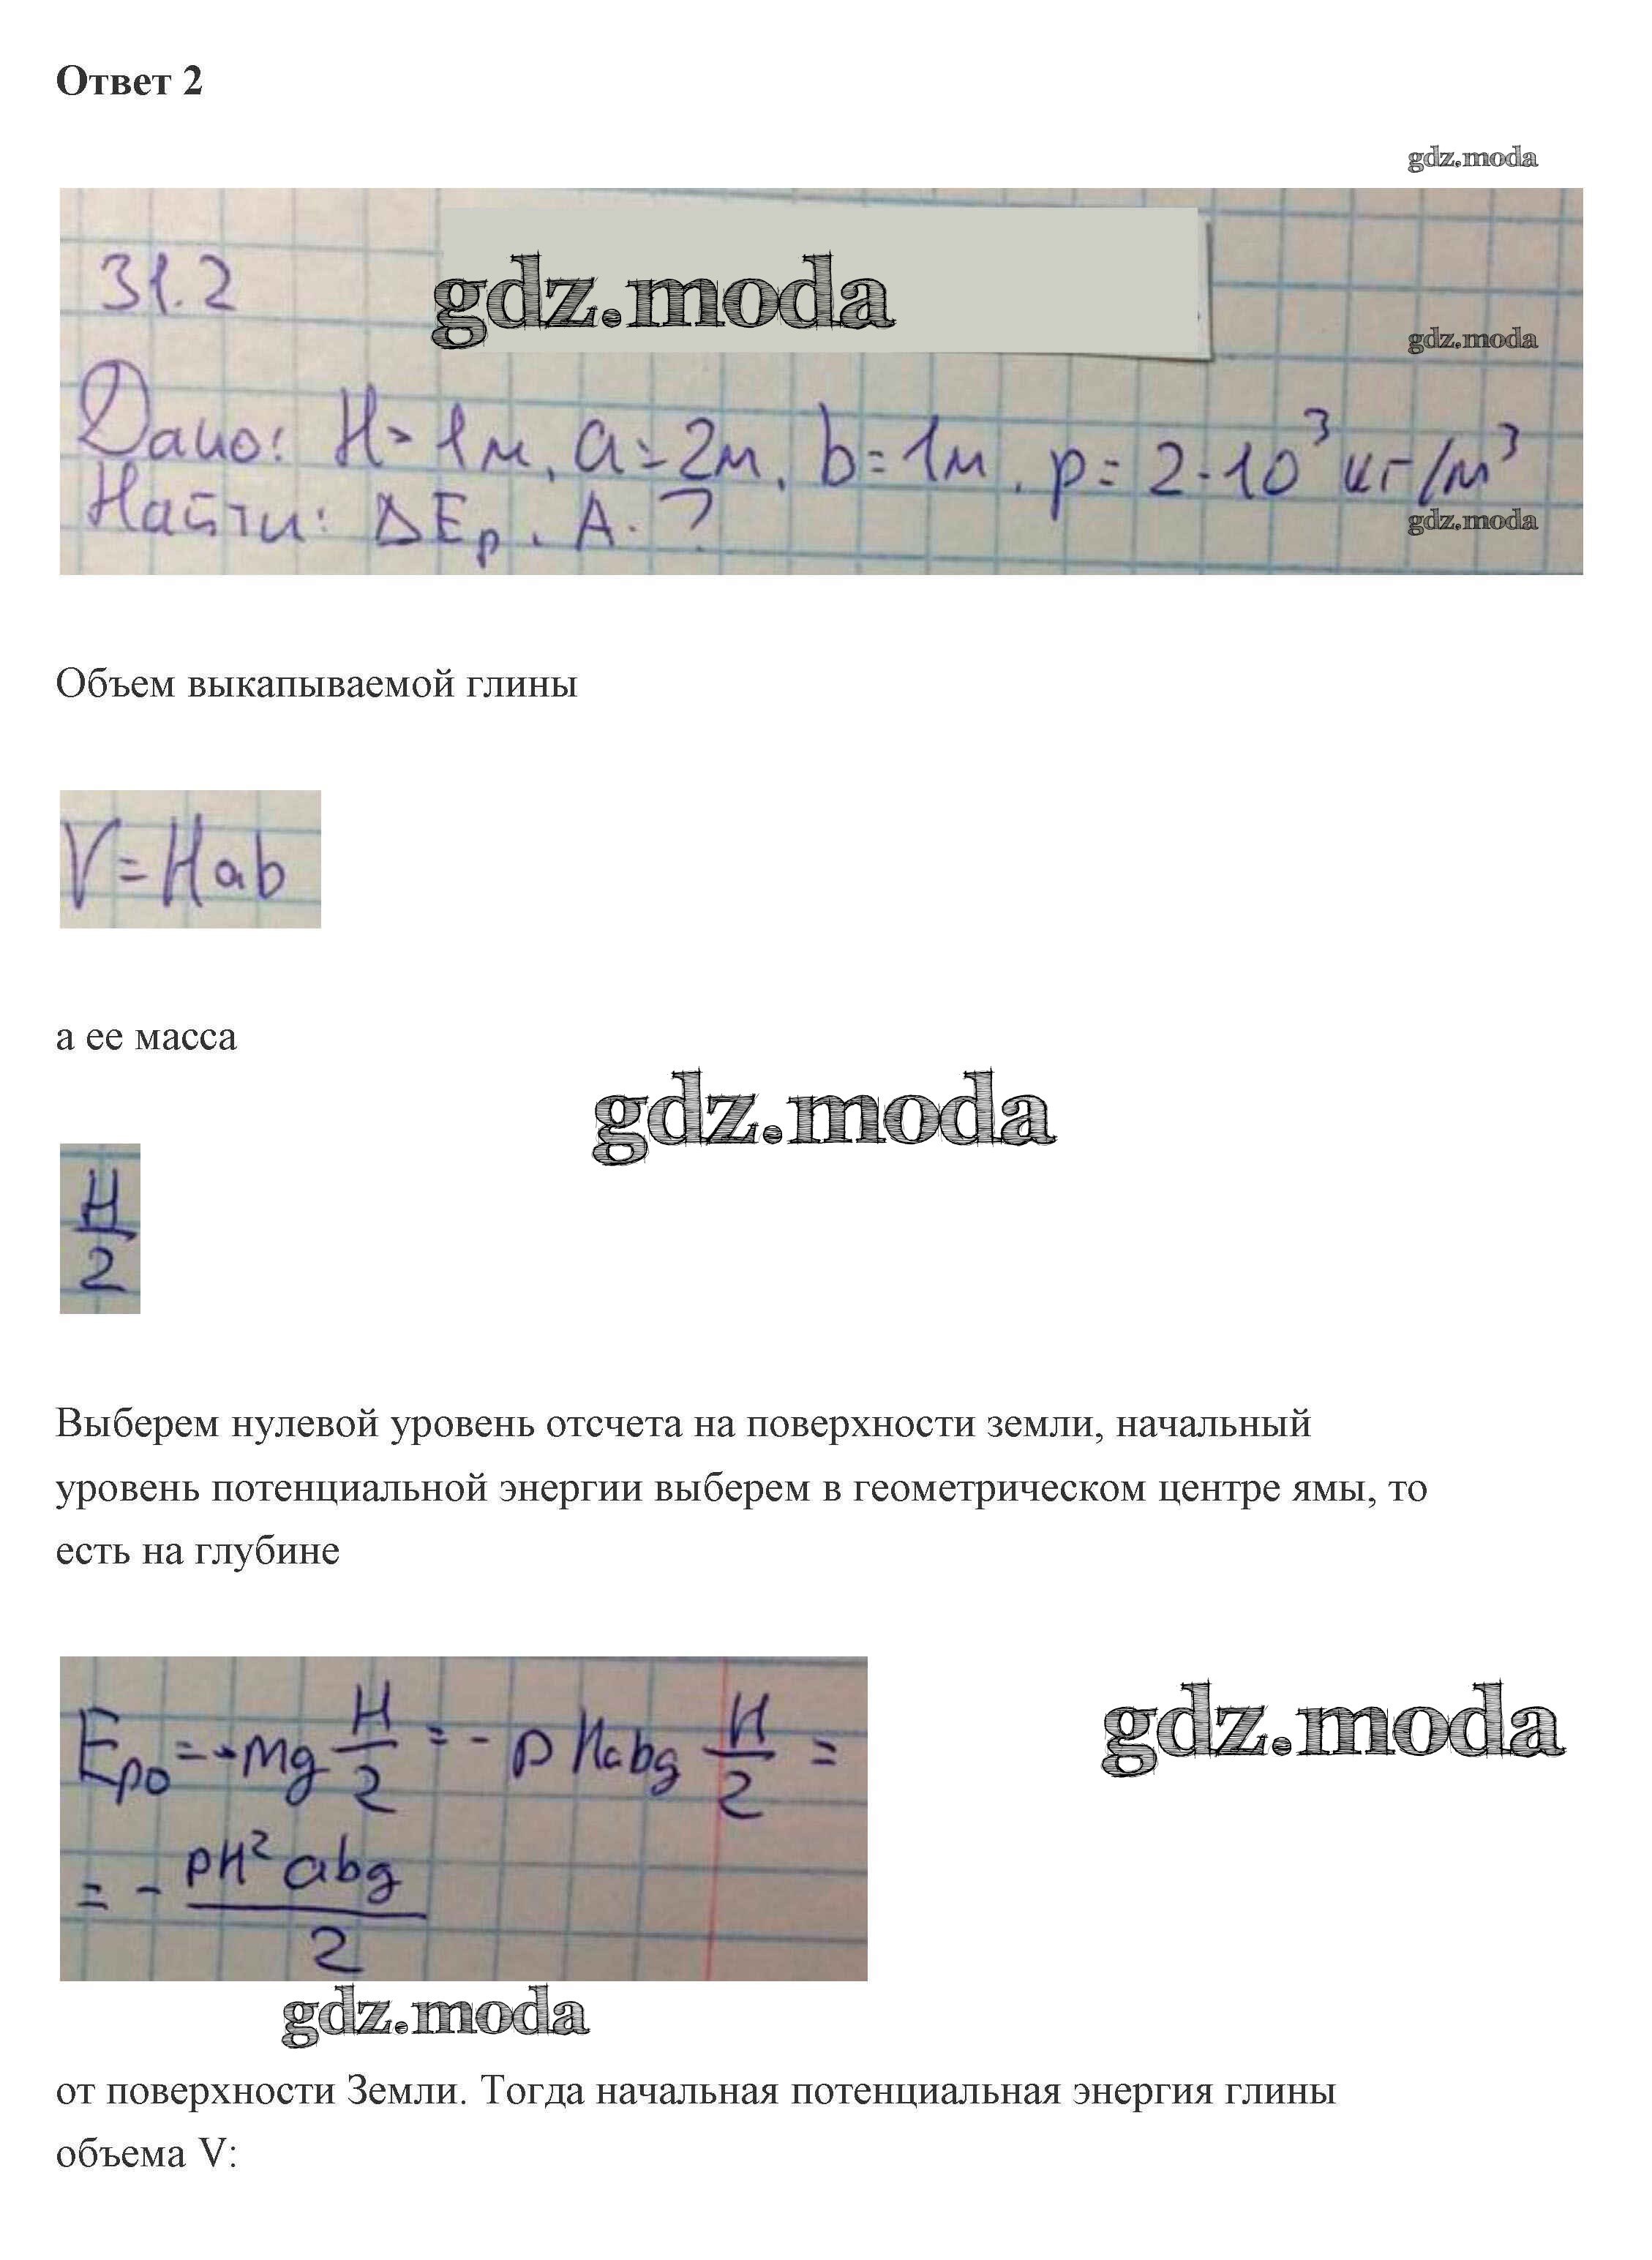 Ответ 2
gdz.moda
31.2
gdz.moda
gdz.moda
Дано: H = 1м, a = 2м, b = 1м, ρ = 2·10³ кг/м³
Найти: ΔEp, A-?
gdz.moda
Объем выкапываемой глины
V=Hab
а ее масса
gdz.moda
H/2
Выберем нулевой уровень отсчета на поверхности земли, начальный
уровень потенциальной энергии выберем в геометрическом центре ямы, то
есть на глубине
Ep0 = -mg H/2 = - ρ Habg H/2 =
gdz.moda
= - ρH² abg / 2
gdz.moda
от поверхности Земли. Тогда начальная потенциальная энергия глины
объема V: